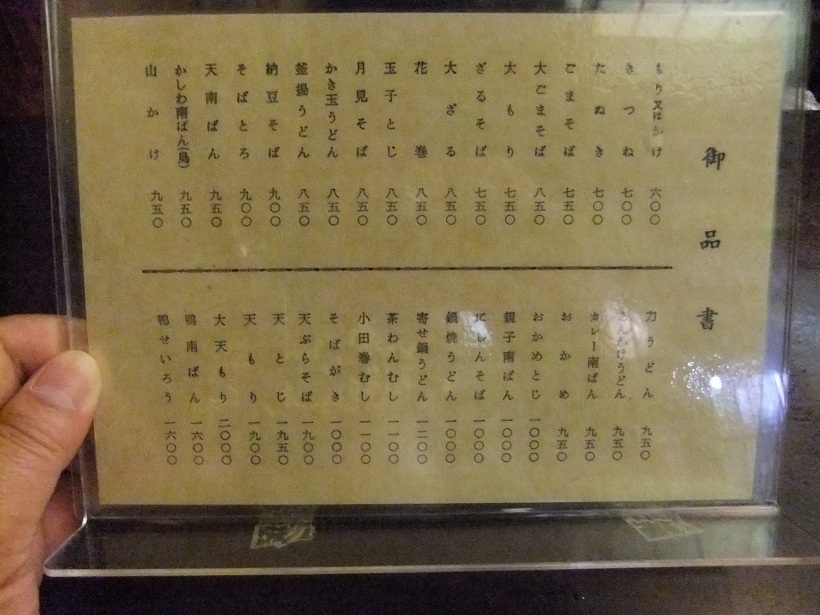 御品書
もり又はかけ 六〇〇
きつね 七〇〇
たぬき 七〇〇
ごまそば 七五〇
大ごまそば 八五〇
大もり 七五〇
ざるそば 七五〇
大ざる 八五〇
花巻 八五〇
玉子とじ 八五〇
月見そば 八五〇
かき玉うどん 八五〇
釜揚うどん 八五〇
納豆そば 九〇〇
そばとろ 九〇〇
天南ばん 九五〇
かしわ南ばん(鳥) 九五〇
山かけ 九五〇
力うどん 九五〇
九五〇
カレー南ばん 九五〇
おかめ 九五〇
おかめとじ 一〇〇〇
親子南ばん 一〇〇〇
にしんそば 一〇〇〇
鍋焼うどん 一〇〇〇
寄せ鍋うどん 一二〇〇
茶わんむし 一一〇〇
小田巻むし 一一〇〇
そばがき 一〇〇〇
天ぷらそば 一九〇〇
天とじ 一九五〇
天もり 一九〇〇
大天もり 二〇〇〇
鴨南ばん 一六〇〇
鴨せいろう 一六〇〇